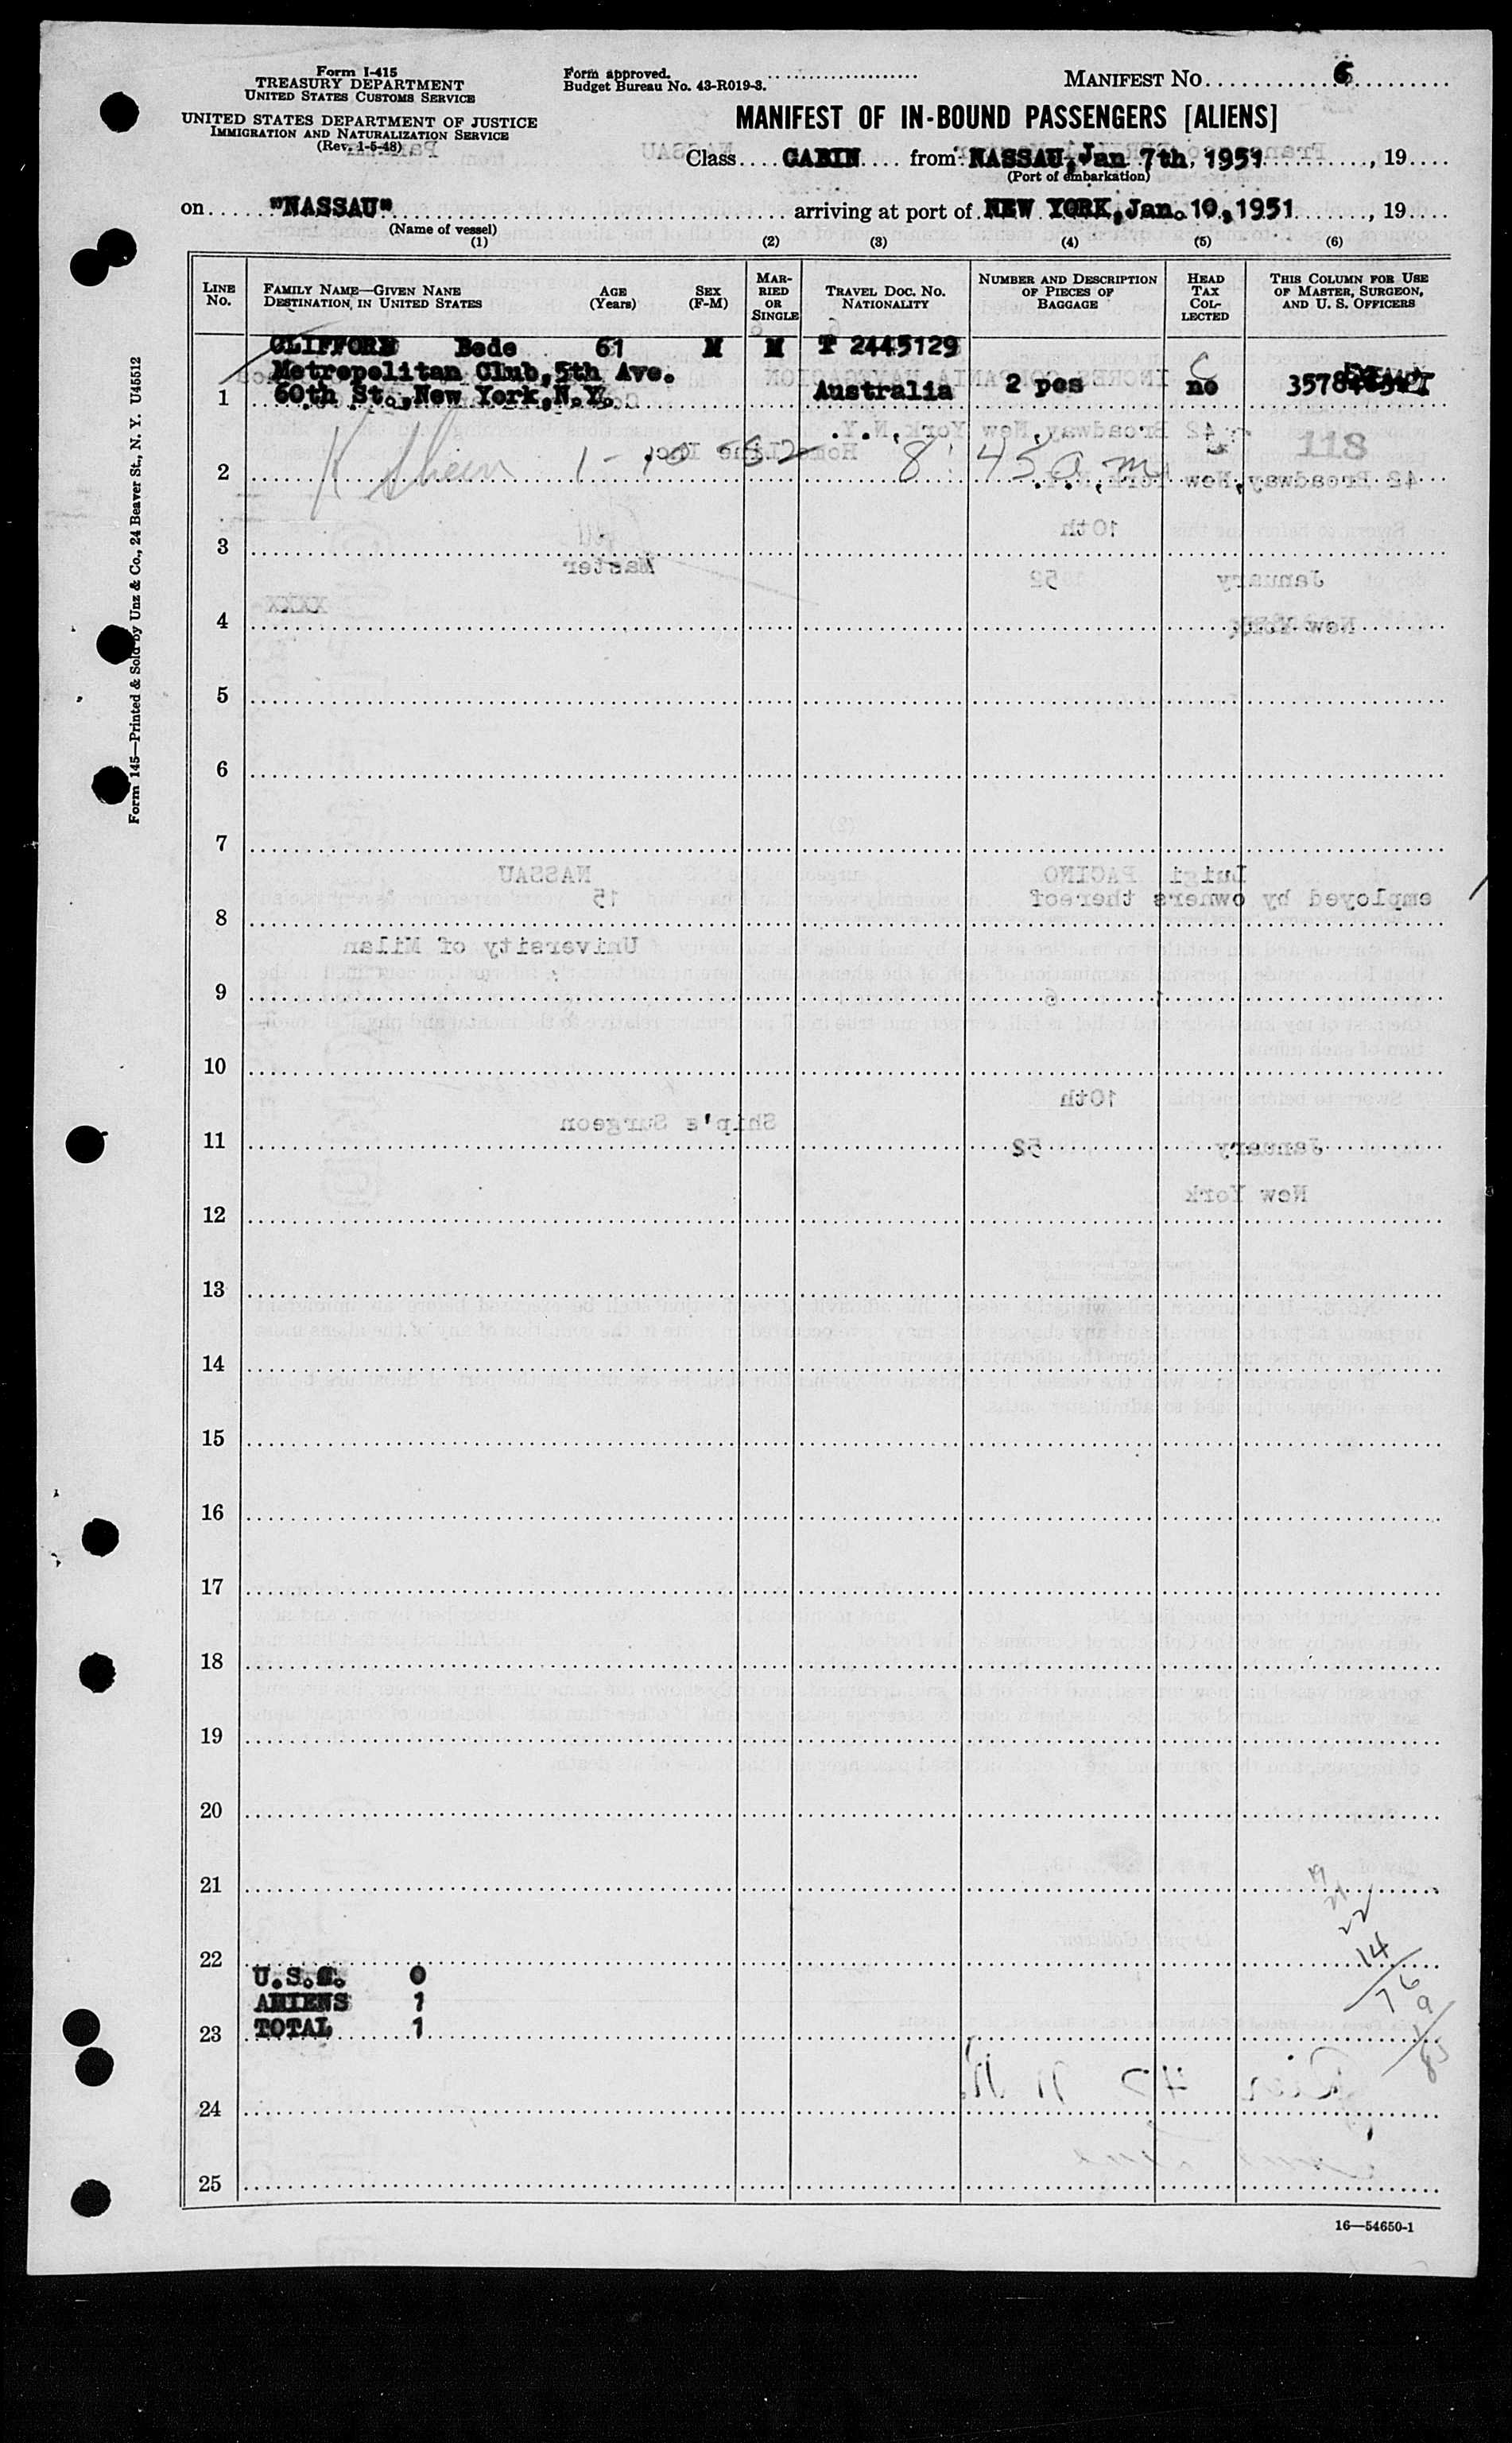 Form I-415
TREASURY DEPARTMENT
UNITED STATES CUSTOMS SERVICE
UNITED STATES DEPARTMENT OF JUSTICE
IMMIGRATION AND NATURALIZATION SERVICE
(Rev. 1-5-48)
Form approved.
Budget Bureau No. 43-R019-3.
MANIFEST NO. 6
MANIFEST OF IN-BOUND PASSENGERS [ALIENS]
Class CABIN from NASSAU, Jan 7th, 1951, 19
(Port of embarkation)
on "NASSAU" arriving at port of NEW YORK, Jan. 10, 1951, 19
(Name of vessel)
(1) (2) (3) (4) (5) (6)
LINE No.
FAMILY NAME—GIVEN NANE
DESTINATION IN UNITED STATES
AGE (Years)
SEX (F-M)
MARRIED OR SINGLE
TRAVEL DOC. NO. NATIONALITY
NUMBER AND DESCRIPTION OF PIECES OF BAGGAGE
HEAD TAX COLLECTED
THIS COLUMN FOR USE OF MASTER, SURGEON, AND U. S. OFFICERS
CLIFFORD Bede 61 M M T 2445129
Metropolitan Club, 5th Ave.
1 60th St., New York, N.Y. Australia 2 pcs no
C
2 1-10-52 8:45 a.m. 118
3
4
5
6
7
8
9
10
11
12
13
14
15
16
17
18
19
20
21
22
U.S.C. 0
ALIENS 1
23 TOTAL 1
24
25
14
76
9
85
16—54650-1
Form 145—Printed & Sold by Unz & Co., 24 Beaver St., N. Y. U45512